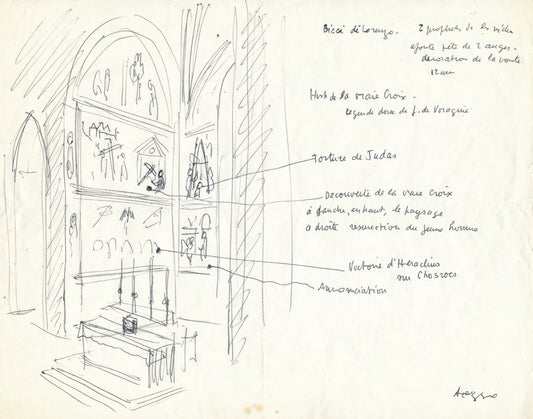 Bicci di Lorenzo. 2 prophetes de
ajoute tête de 2 anges -
decoration de la voute
12 am
Hist de la vraie Croix -
legende doree de J. de Voragine
Torture de Judas
Decouverte de la vraie Croix
à gauche, en haut, le paysage
a droite resurrection du jeune homme
Victoire d'Heraclius
sur Chosroes
Annonciation
Arezzo